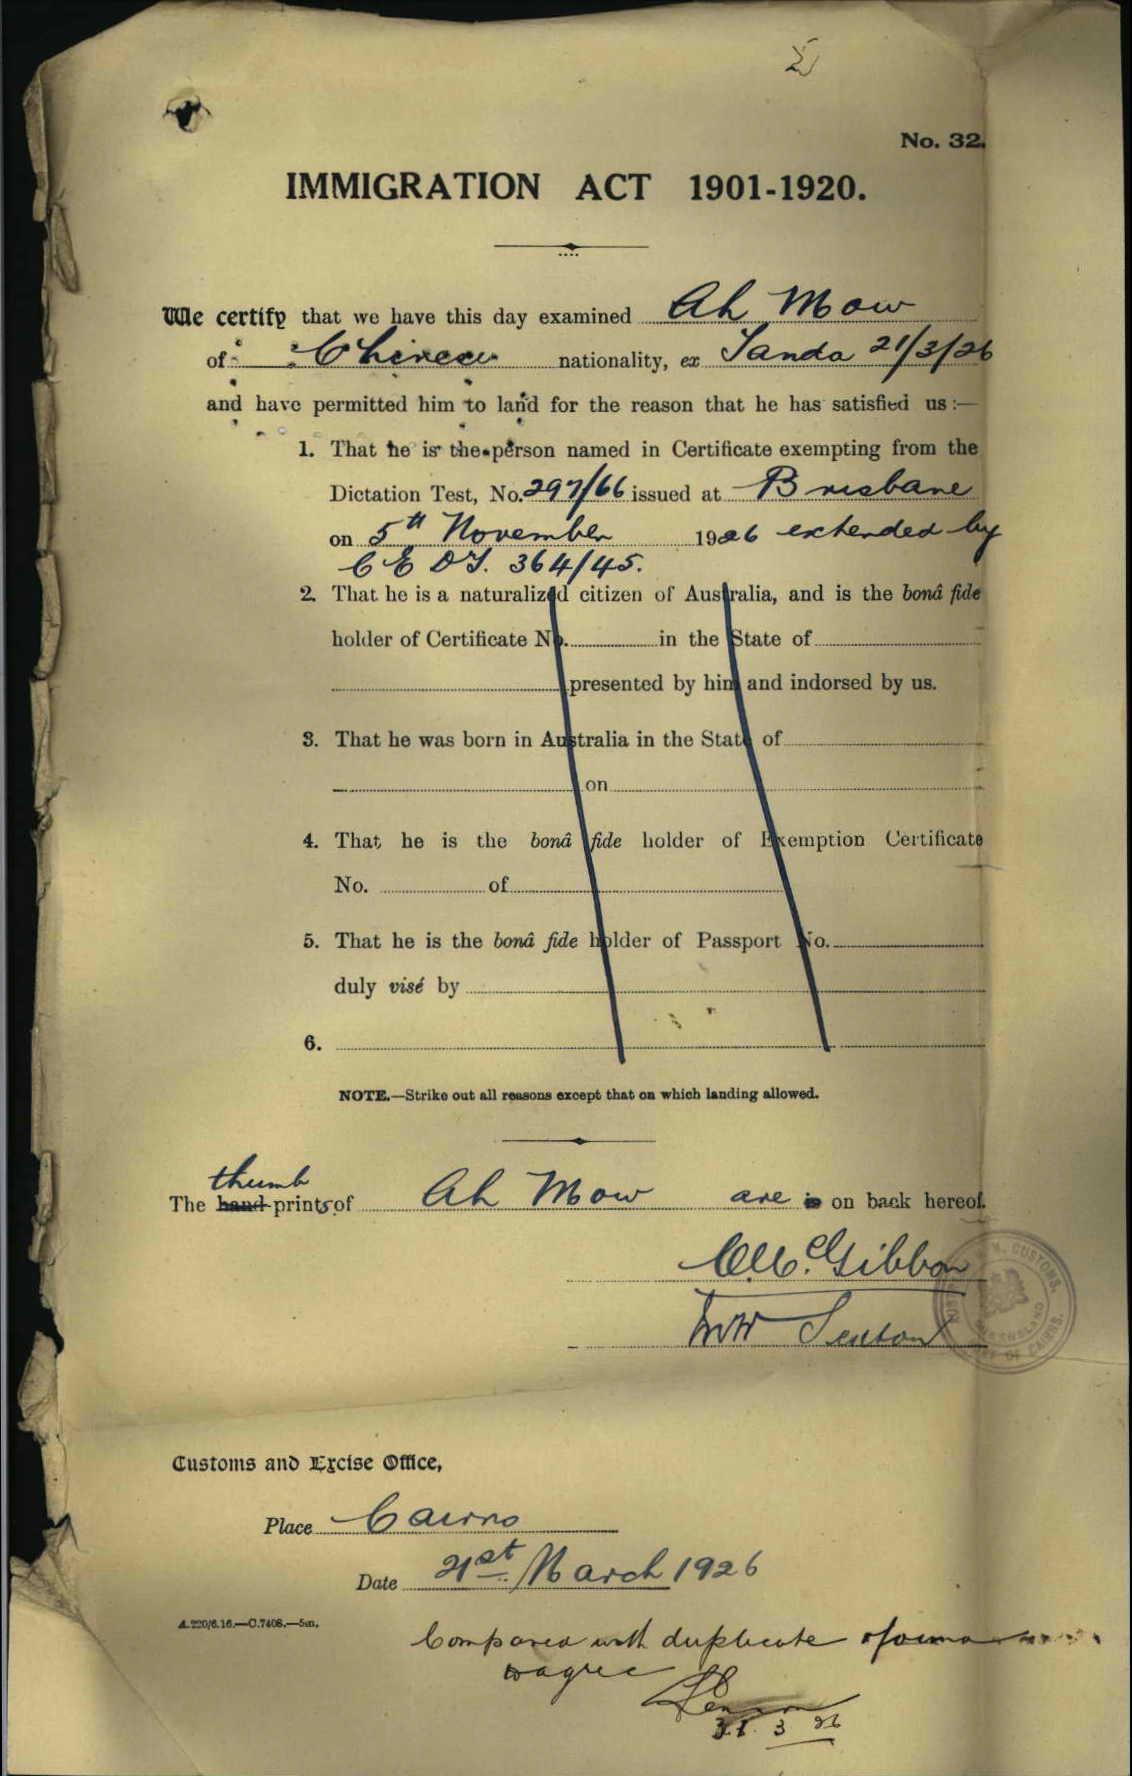 No. 32.
IMMIGRATION ACT 1901-1920.
We certify that we have this day examined Ah Mow
of Chinese nationality, ex Tanda 21/3/26
and have permitted him to land for the reason that he has satisfied us:—
1. That he is the person named in Certificate exempting from the
Dictation Test, No. 297/66 issued at Brisbane
on 5th November 1926 extended by
C E D T. 364/45.
2. That he is a naturalized citizen of Australia, and is the bonâ fide
holder of Certificate No. in the State of
presented by him and indorsed by us.
3. That he was born in Australia in the State of
on
4. That he is the bonâ fide holder of Exemption Certificate
No. of
5. That he is the bonâ fide holder of Passport No.
duly visé by
6.
NOTE.—Strike out all reasons except that on which landing allowed.
thumb
The hand prints of Ah Mow are is on back hereof.
McGibbon
Sexton
CUSTOMS.
QUEENSLAND
CAIRNS.
Customs and Excise Office,
Place Cairns
Date 21st March 1926
A.220/6.16.—C.7408.—5m.
Compared with duplicate
agree
31 3 26